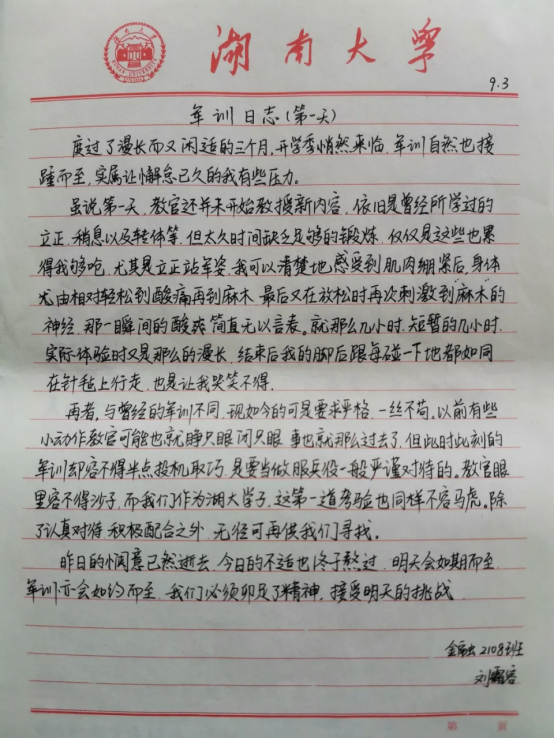 湖南大学
9.3
军训日志(第一天)
度过了漫长而又闲适的三个月,开学季悄然来临,军训自然也接
踵而至,实属让懈怠已久的我有些压力。
虽说第一天,教官还并未开始教授新内容,依旧是曾经所学过的
立正,稍息以及转体等,但太久时间缺乏足够的锻炼,仅仅是这些也累
得我够呛,尤其是立正站军姿,我可以清楚地感受到肌肉绷紧后,身体
尤由相对轻松到酸痛再到麻木,最后又在放松时再次刺激到麻木的
神经,那一瞬间的酸爽简直无以言表。就那么几小时,短暂的几小时,
实际体验时又是那么的漫长,结束后我的脚后跟每碰一下地都如同
在针毡上行走,也是让我哭笑不得.
再者,与曾经的军训不同,现如今的可是要求严格,一丝不苟,以前有些
小动作教官可能也就睁只眼闭只眼,事也就那么过去了,但此时此刻的
军训却容不得半点投机取巧,是要当做服兵役一般严谨对待的。教官眼
里容不得沙子,而我们作为湖大学子,这第一道考验也同样不容马虎。除
了认真对待,积极配合之外,无径可再供我们寻找。
昨日的惬意已然逝去,今日的不适也终于熬过,明天会如期而至,
军训亦会如约而至,我们必须卯足了精神,接受明天的挑战
金融2108班
刘霜容
第 页